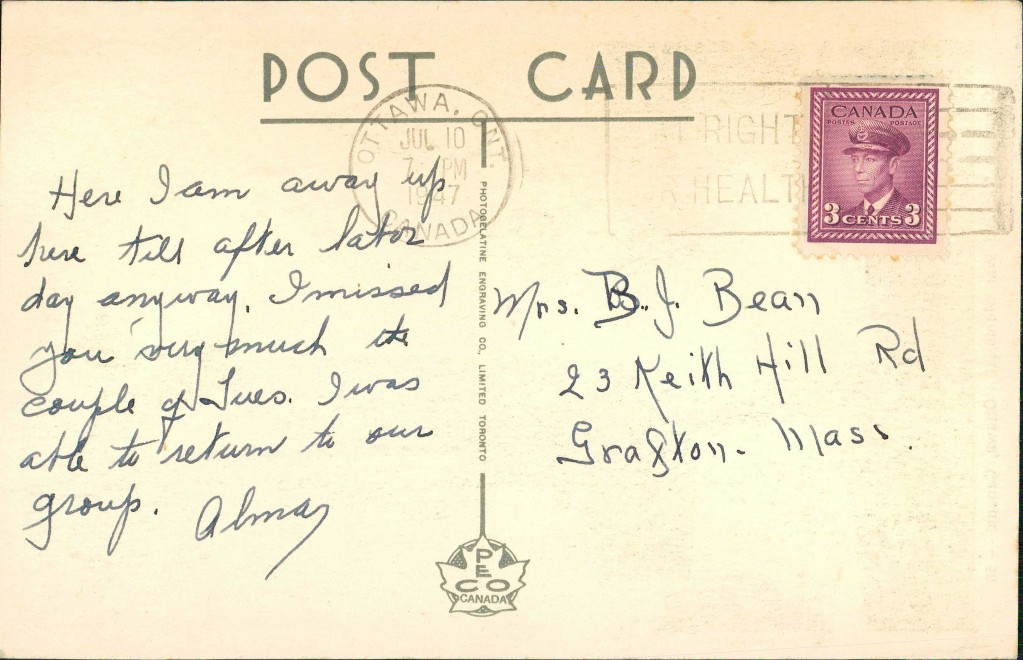 POST CARD
OTTAWA, ONT.
JUL 10
7 PM
1947
CANADA
RIGHT
R HEALTH
CANADA
POSTES POSTAGE
3 CENTS 3
Here I am away up
here till after labor
day anyway. I missed
you very much the
couple of Tues. I was
able to return to our
group. Alma
Mrs. B. J. Bean
23 Keith Hill Rd
Grafton. Mass.
PHOTOGELATINE ENGRAVING CO., LIMITED TORONTO
PECO
CANADA